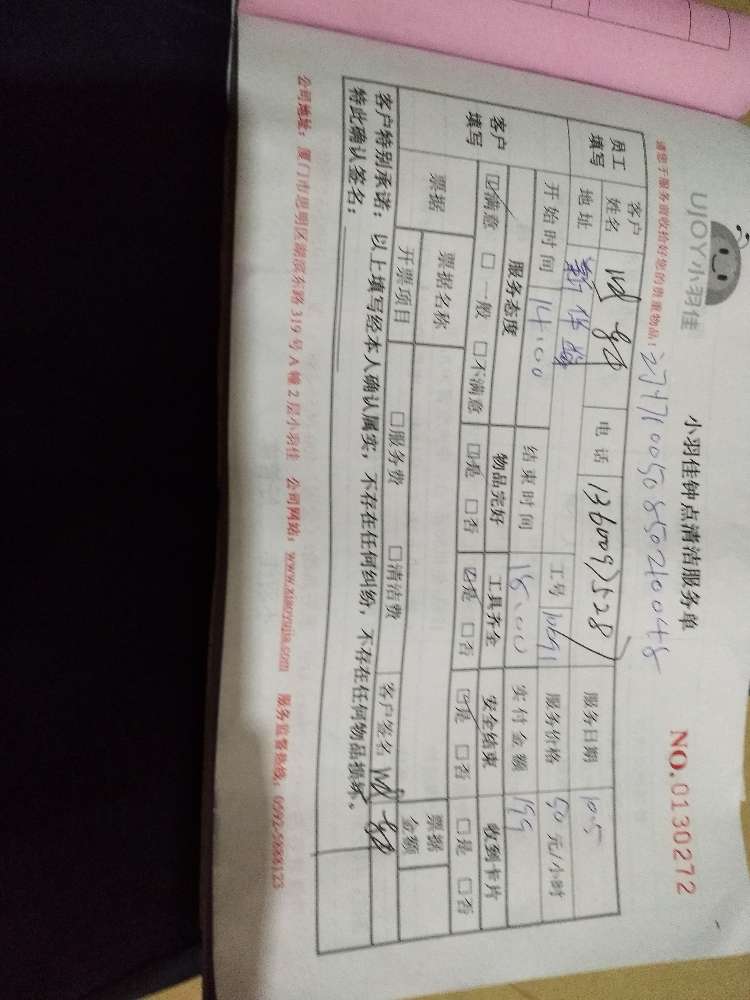 UJOY小羽佳
小羽佳钟点清洁服务单
NO.0130272
请您于服务前收拾好您的贵重物品!
员工填写 客户姓名 电话 服务日期 10.5
地址 工号 服务价格 50 元/小时
开始时间 14:00 结束时间 18:00 实付金额 199
客户填写 服务态度 物品完好 工具齐全 安全结束 收到卡片
☑满意 □一般 □不满意 ☑是 □否 ☑是 □否 ☑是 □否 □是 □否
票据 票据名称 票据金额
开票项目 □服务费 □清洁费 客户签名
客户特别承诺:以上填写经本人确认属实,不存在任何纠纷,不存在任何物品损坏。
特此确认签名:
公司地址:厦门市思明区湖滨东路 319 号 A 幢 2 层小羽佳 公司网站:www.xiaoyujia.com 服务监督热线:0592-5888123